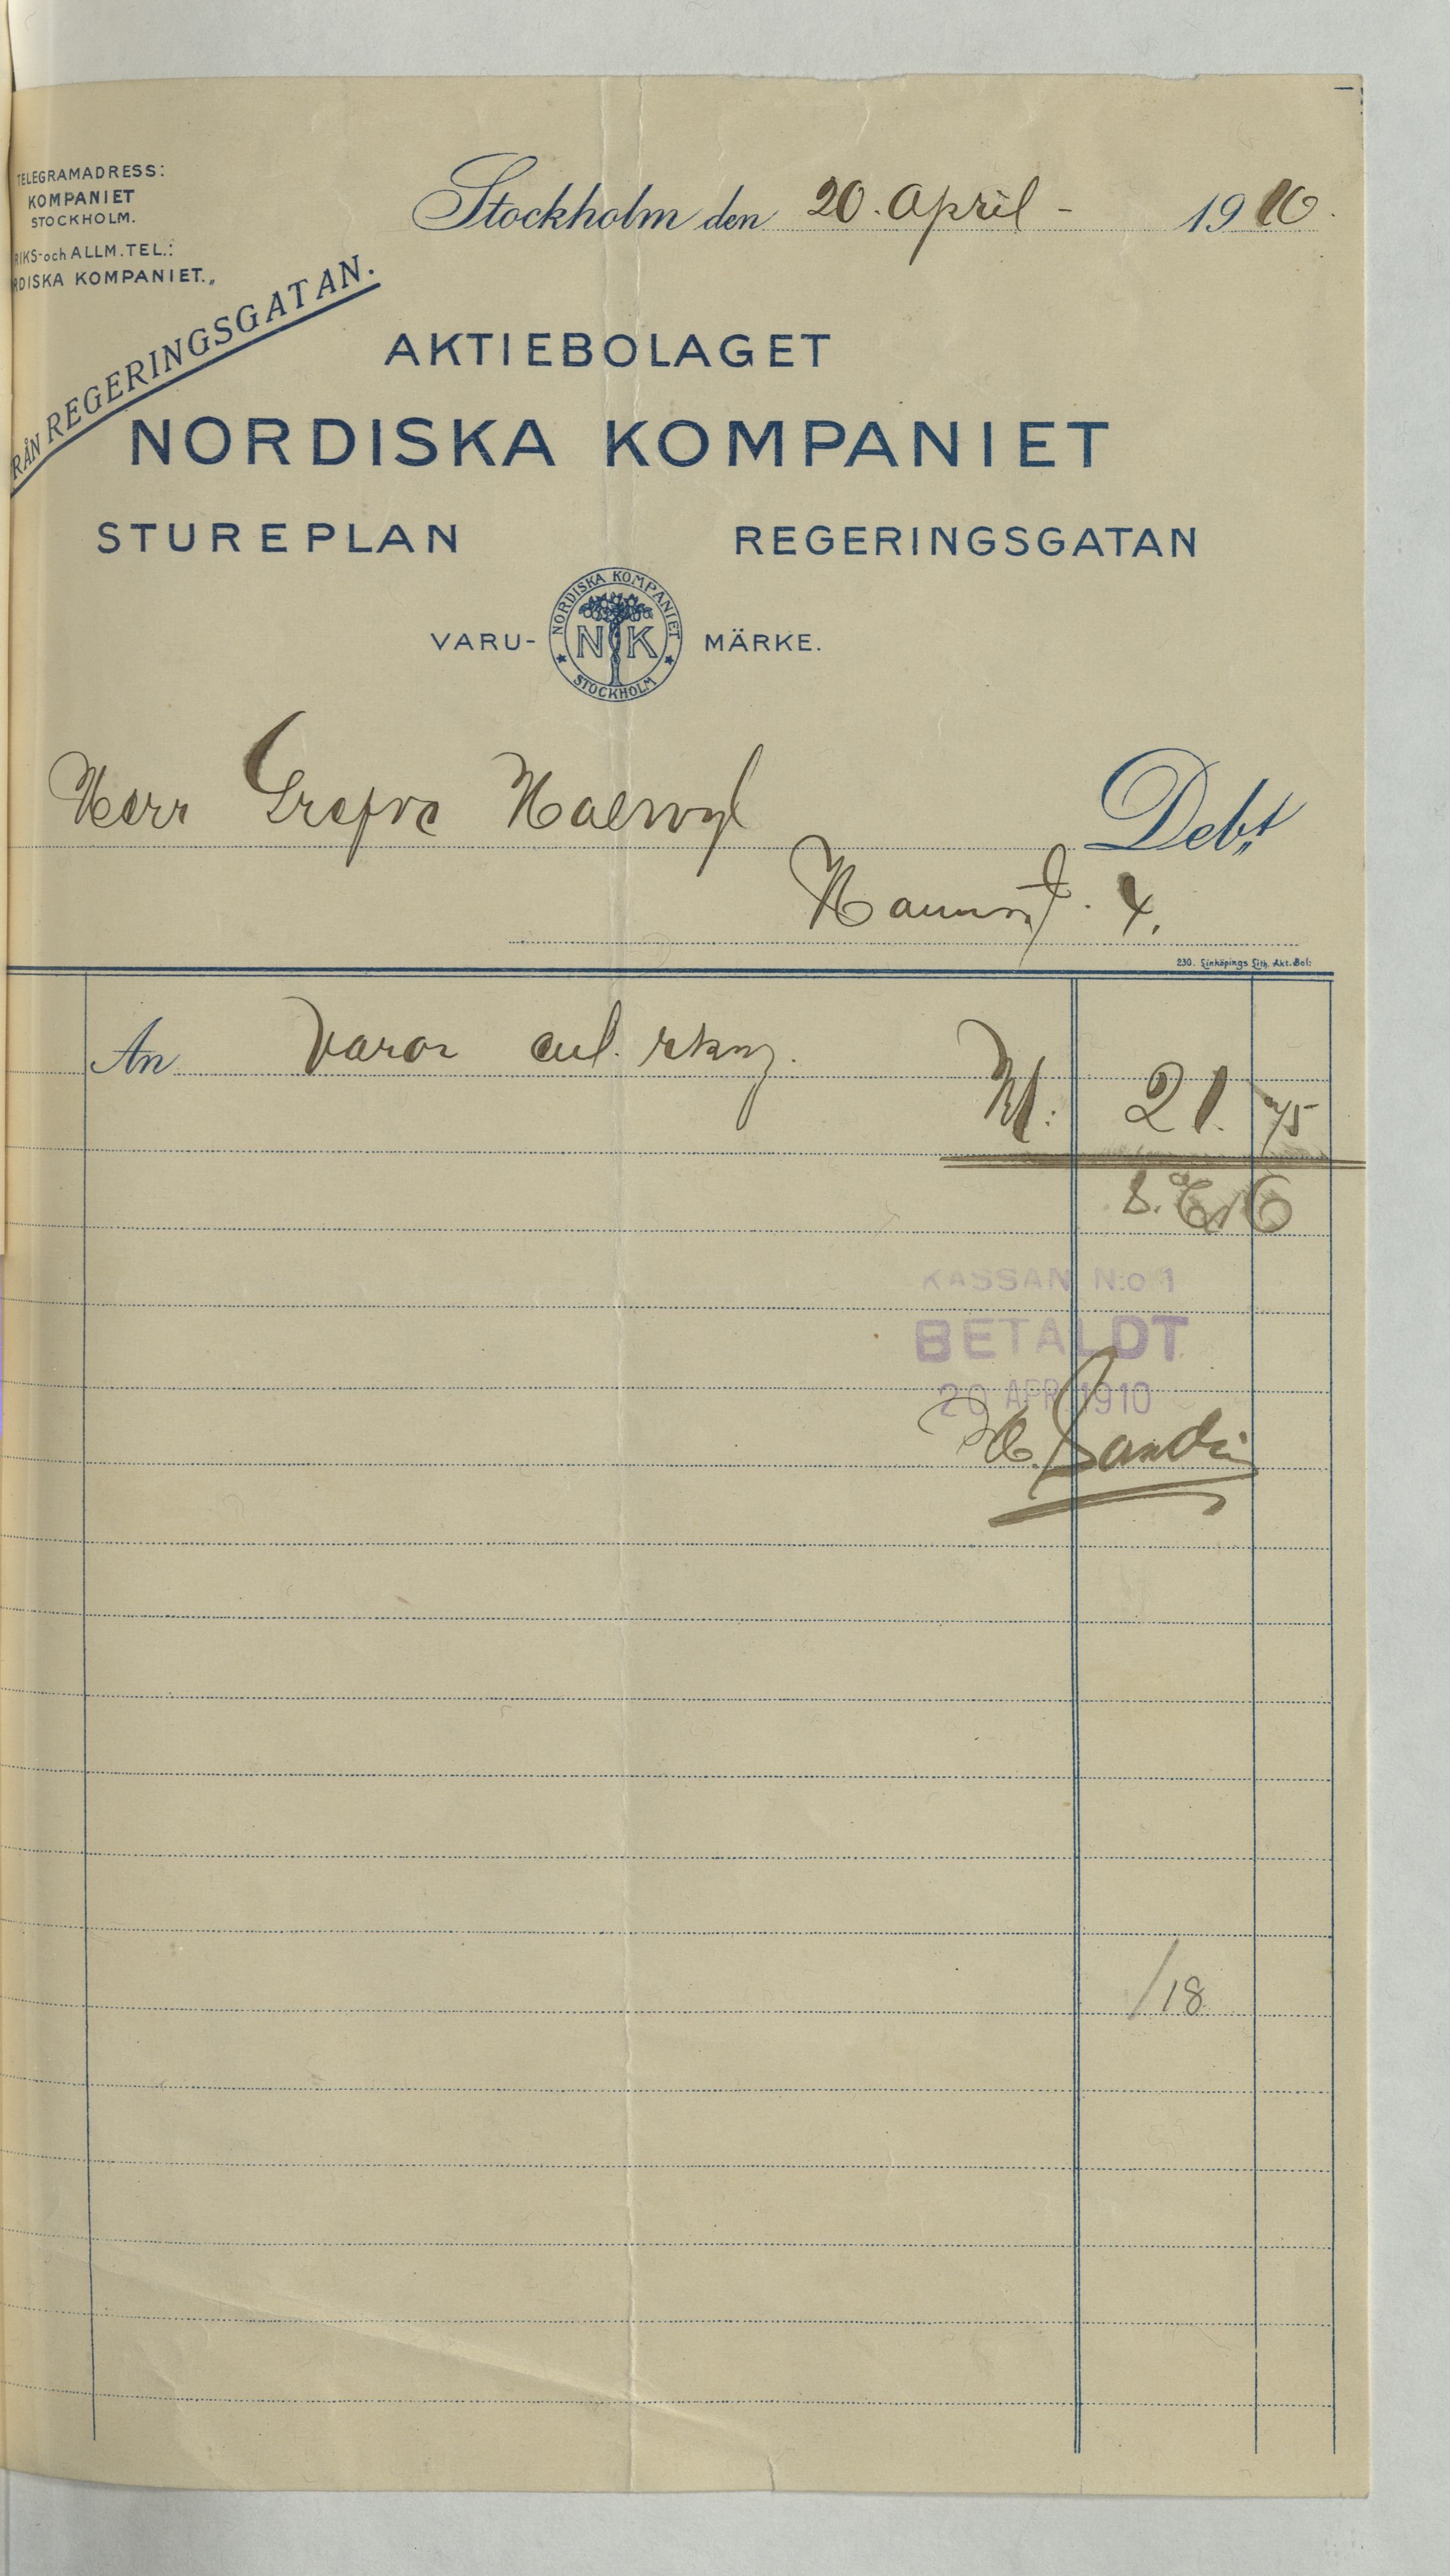 TELEGRAMADRESS:
KOMPANIET
STOCKHOLM.
RIKS- och ALLM. TEL.:
RDISKA KOMPANIET.„
RÅN REGERINGSGATAN.
Stockholm den 20. April - 1910.
AKTIEBOLAGET
NORDISKA KOMPANIET
STUREPLAN REGERINGSGATAN
VARU- MÄRKE.
NORDISKA KOMPANIET
NK
STOCKHOLM
Herr Grefve Hallwyl Debt
Hamng. 4.
230. Linköpings Lith. Akt. Bol:
An Varor enl. räkng.
Kr: 21. 75
KASSAN N:o 1
BETALDT
20 APR. 1910
/18